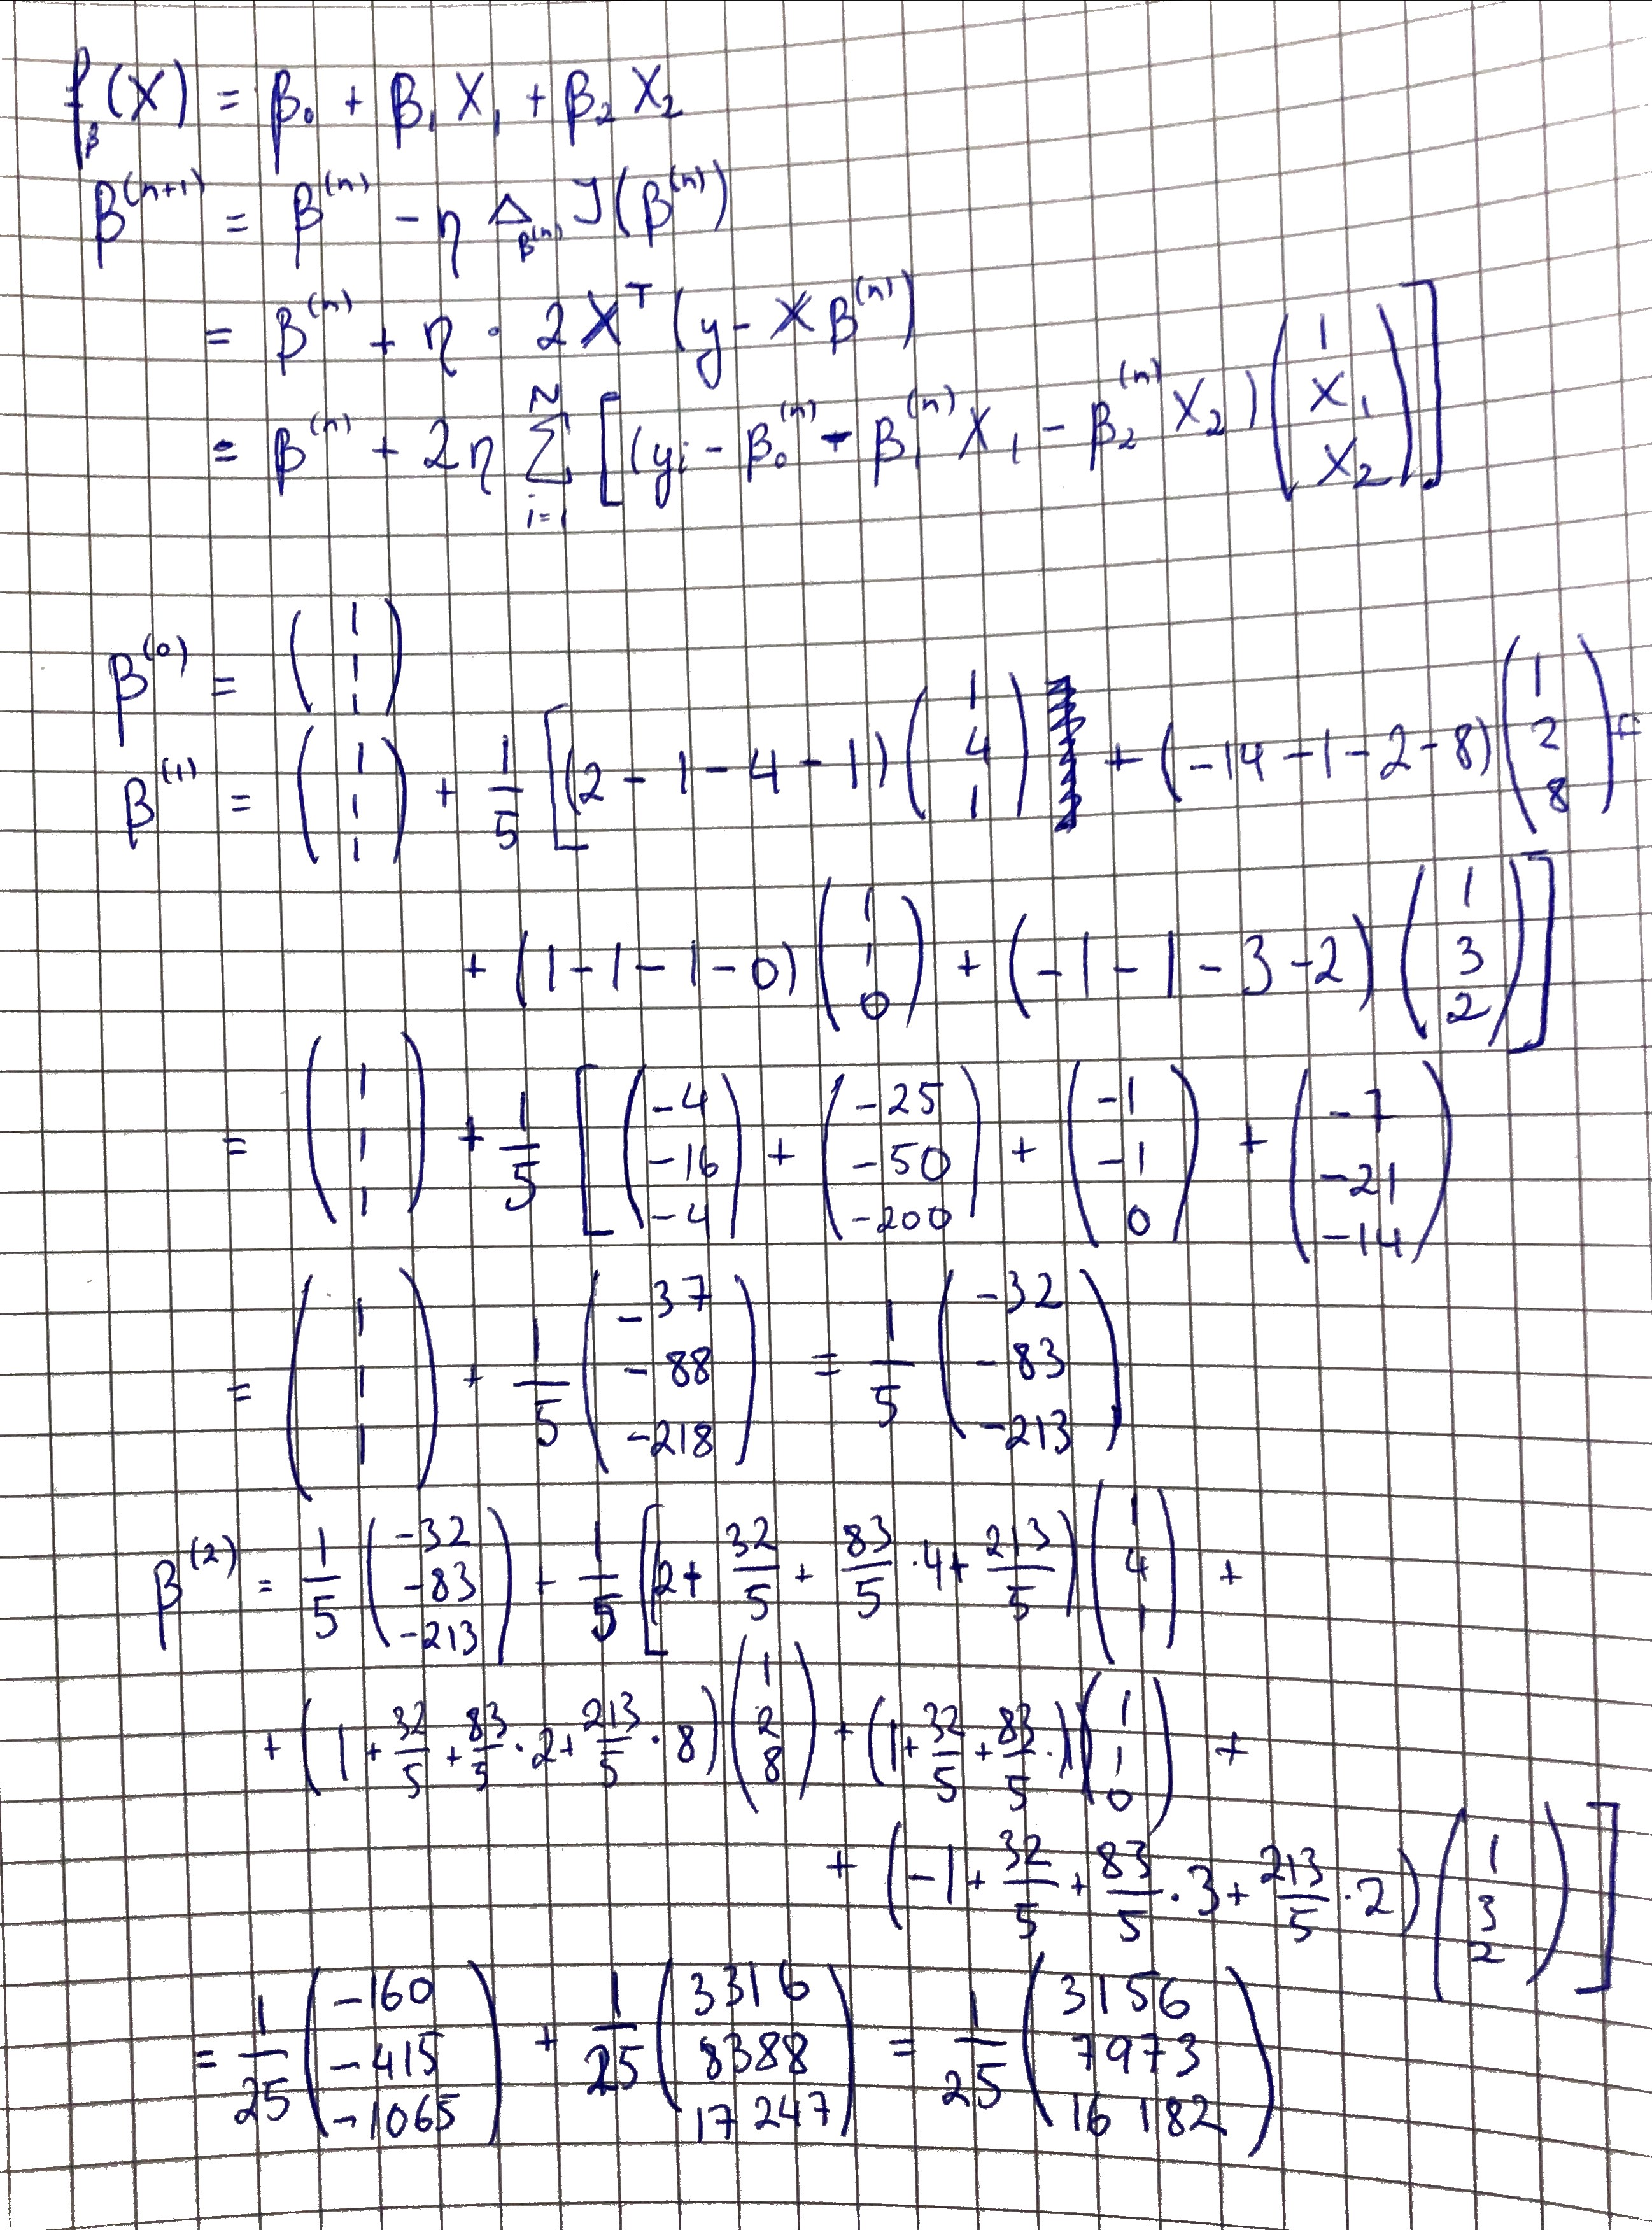 f_β(X) = β₀ + β₁ X₁ + β₂ X₂
β^(n+1) = β^(n) − η Δ_β^(n) J(β^(n))
= β^(n) + η · 2X^T (y − Xβ^(n))
= β^(n) + 2η Σ_{i=1}^{N} [(yi − β₀^(n) − β₁^(n) X₁ − β₂^(n) X₂) (1 X₁ X₂)]
β^(0) = (1 1 1)
β^(1) = (1 1 1) + 1/5 [(2 − 1 − 4 − 1) (1 4 1) + (−14 − 1 − 2 − 8) (1 2 8) +
+ (1 − 1 − 1 − 0) (1 1 0) + (−1 − 1 − 3 − 2) (1 3 2)]
= (1 1 1) + 1/5 [(−4 −16 −4) + (−25 −50 −200) + (−1 −1 0) + (−7 −21 −14)
= (1 1 1) + 1/5 (−37 −88 −218) = 1/5 (−32 −83 −213)
β^(2) = 1/5 (−32 −83 −213) + 1/5 [(2 + 32/5 + 83/5 · 4 + 213/5) (1 4 1) +
+ (1 + 32/5 + 83/5 · 2 + 213/5 · 8) (1 2 8) + (1 + 32/5 + 83/5 · 1) (1 1 0) +
+ (−1 + 32/5 + 83/5 · 3 + 213/5 · 2) (1 3 2)]
= 1/25 (−160 −415 −1065) + 1/25 (3316 8388 17 247) = 1/25 (3156 7973 16 182)